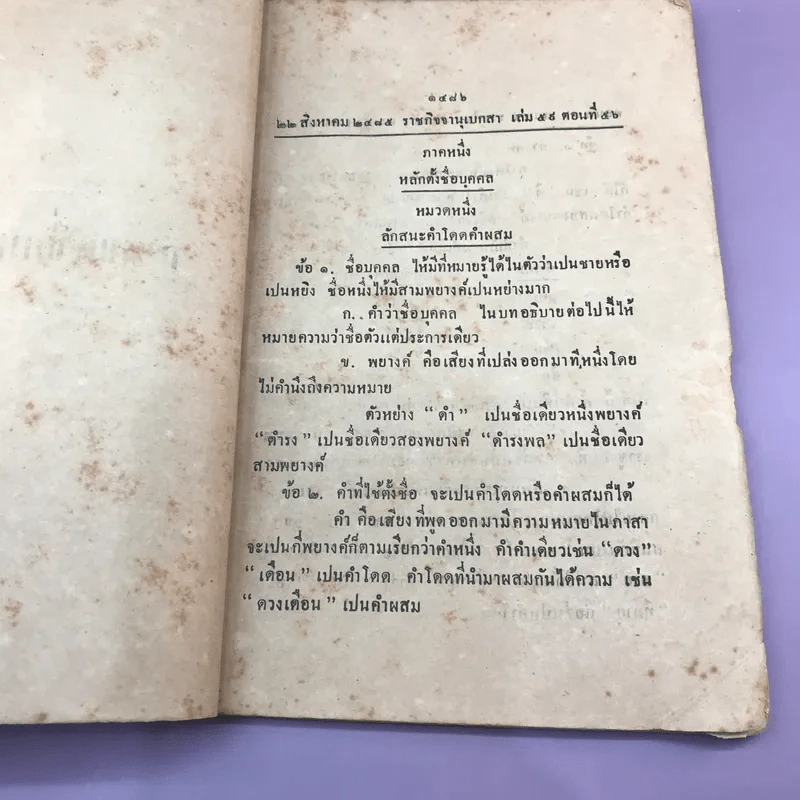 ๑๔๘๖
๒๒ สิงหาคม ๒๔๘๕ ราชกิจจานุเบกสา เล่ม ๕๙ ตอนที่ ๕๖
ภาคหนึ่ง
หลักตั้งชื่อบุคคล
หมวดหนึ่ง
ลักสนะคำโดดคำผสม
ข้อ ๑. ชื่อบุคคล ไห้มีที่หมายรู้ได้ไนตัวว่าเปนชายหรือ
เปนหยิง ชื่อหนึ่งไห้มีสามพยางค์เปนหย่างมาก
ก. คำว่าชื่อบุคคล ไนบทอธิบายต่อไปนี้ไห้
หมายความว่าชื่อตัวแต่ประการเดียว
ข. พยางค์ คือเสียงที่เปล่งออกมาที่หนึ่งโดย
ไม่คำนึงถึงความหมาย
ตัวหย่าง “ดำ” เปนชื่อเดียวหนึ่งพยางค์
“ดำรง” เปนชื่อเดียวสองพยางค์ “ดำรงพล” เปนชื่อเดียว
สามพยางค์
ข้อ ๒. คำที่ไช้ตั้งชื่อ จะเปนคำโดดหรือคำผสมก็ได้
คำ คือเสียงที่พูดออกมามีความหมายไนภาสา
จะเปนกี่พยางค์ก็ตามเรียกว่าคำหนึ่ง คำคำเดียวเช่น “ดวง”
“เดือน” เปนคำโดด คำโดดที่นำมาผสมกันได้ความ เช่น
“ดวงเดือน” เปนคำผสม